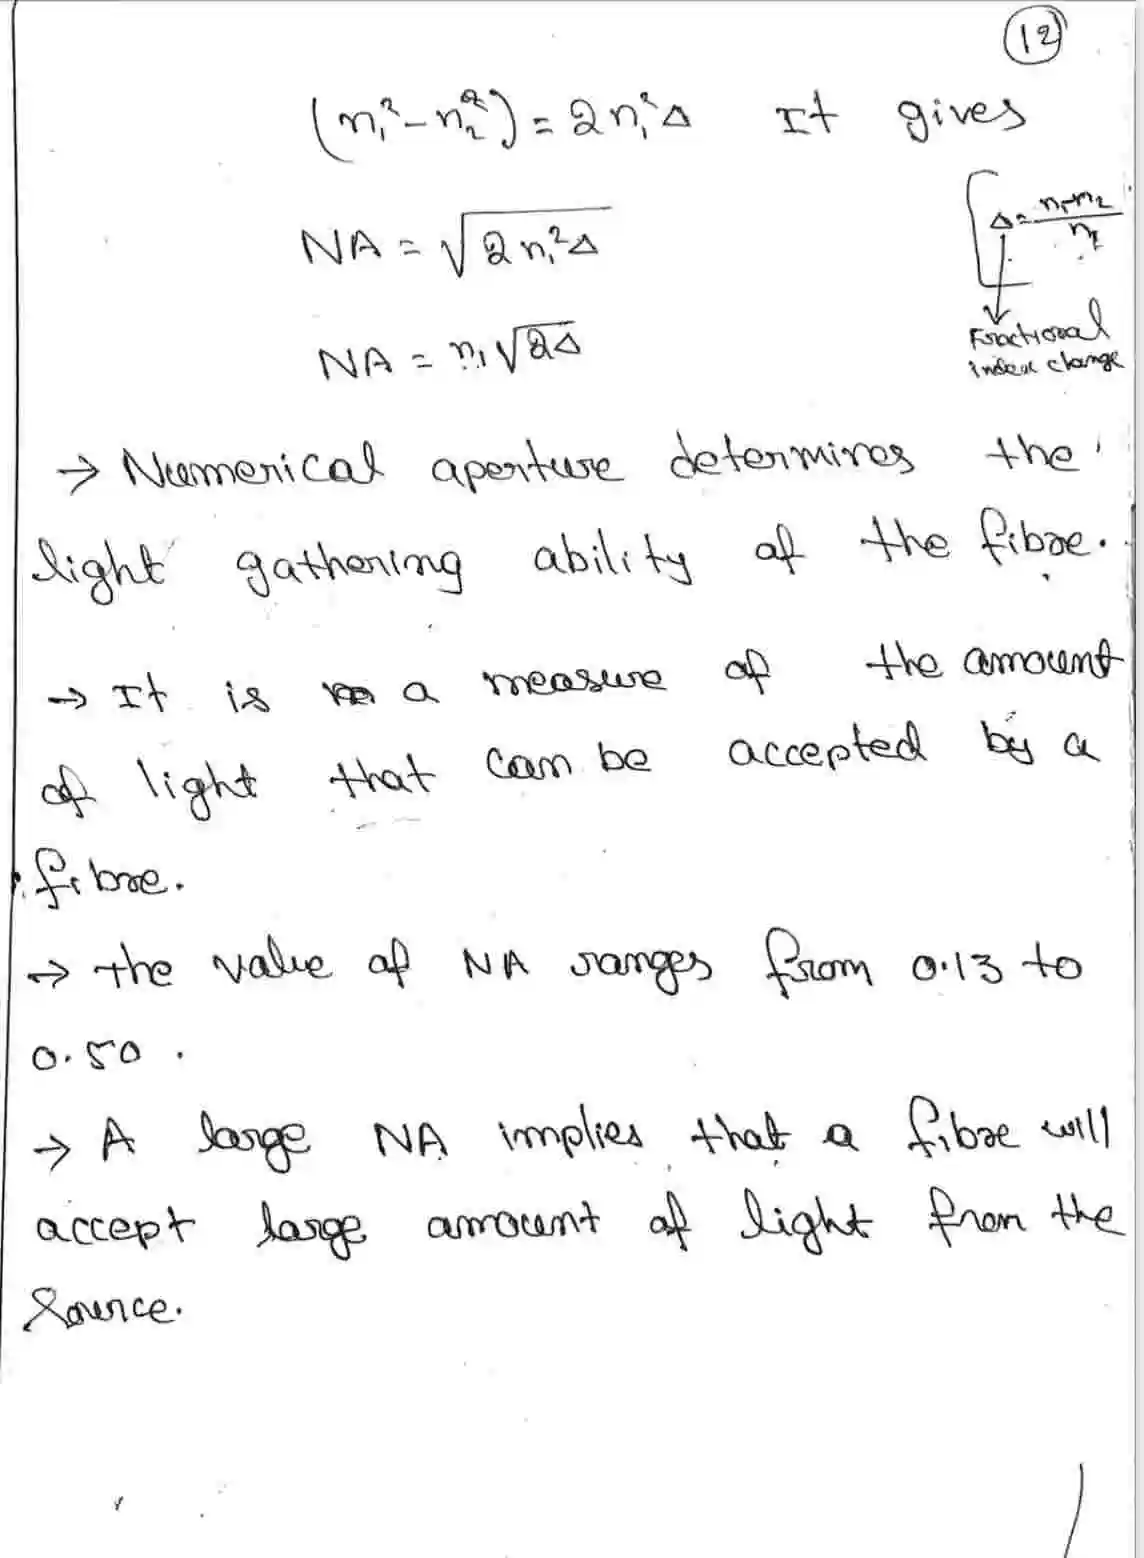 12
(n₁² - n₂²) = 2n₁²Δ It gives
NA = √2n₁²Δ
[Δ = n₁-n₂/n₁
Fractional
index change
NA = n₁√2Δ
→ Numerical aperture determines the
light gathering ability of the fibre.
→ It is a measure of the amount
of light that can be accepted by a
fibre.
→ the value of NA ranges from 0.13 to
0.50 .
→ A large NA implies that a fibre will
accept large amount of light from the
Source.